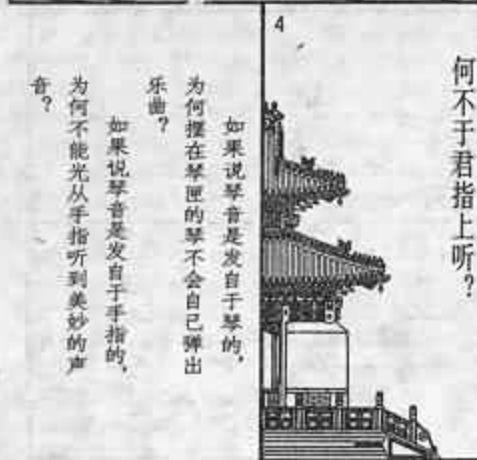 何不于君指上听？
4
如果说琴音是发自于琴的，
为何摆在琴匣的琴不会自己弹出
乐曲？
如果说琴音是发自于手指的，
为何不能光从手指听到美妙的声
音？